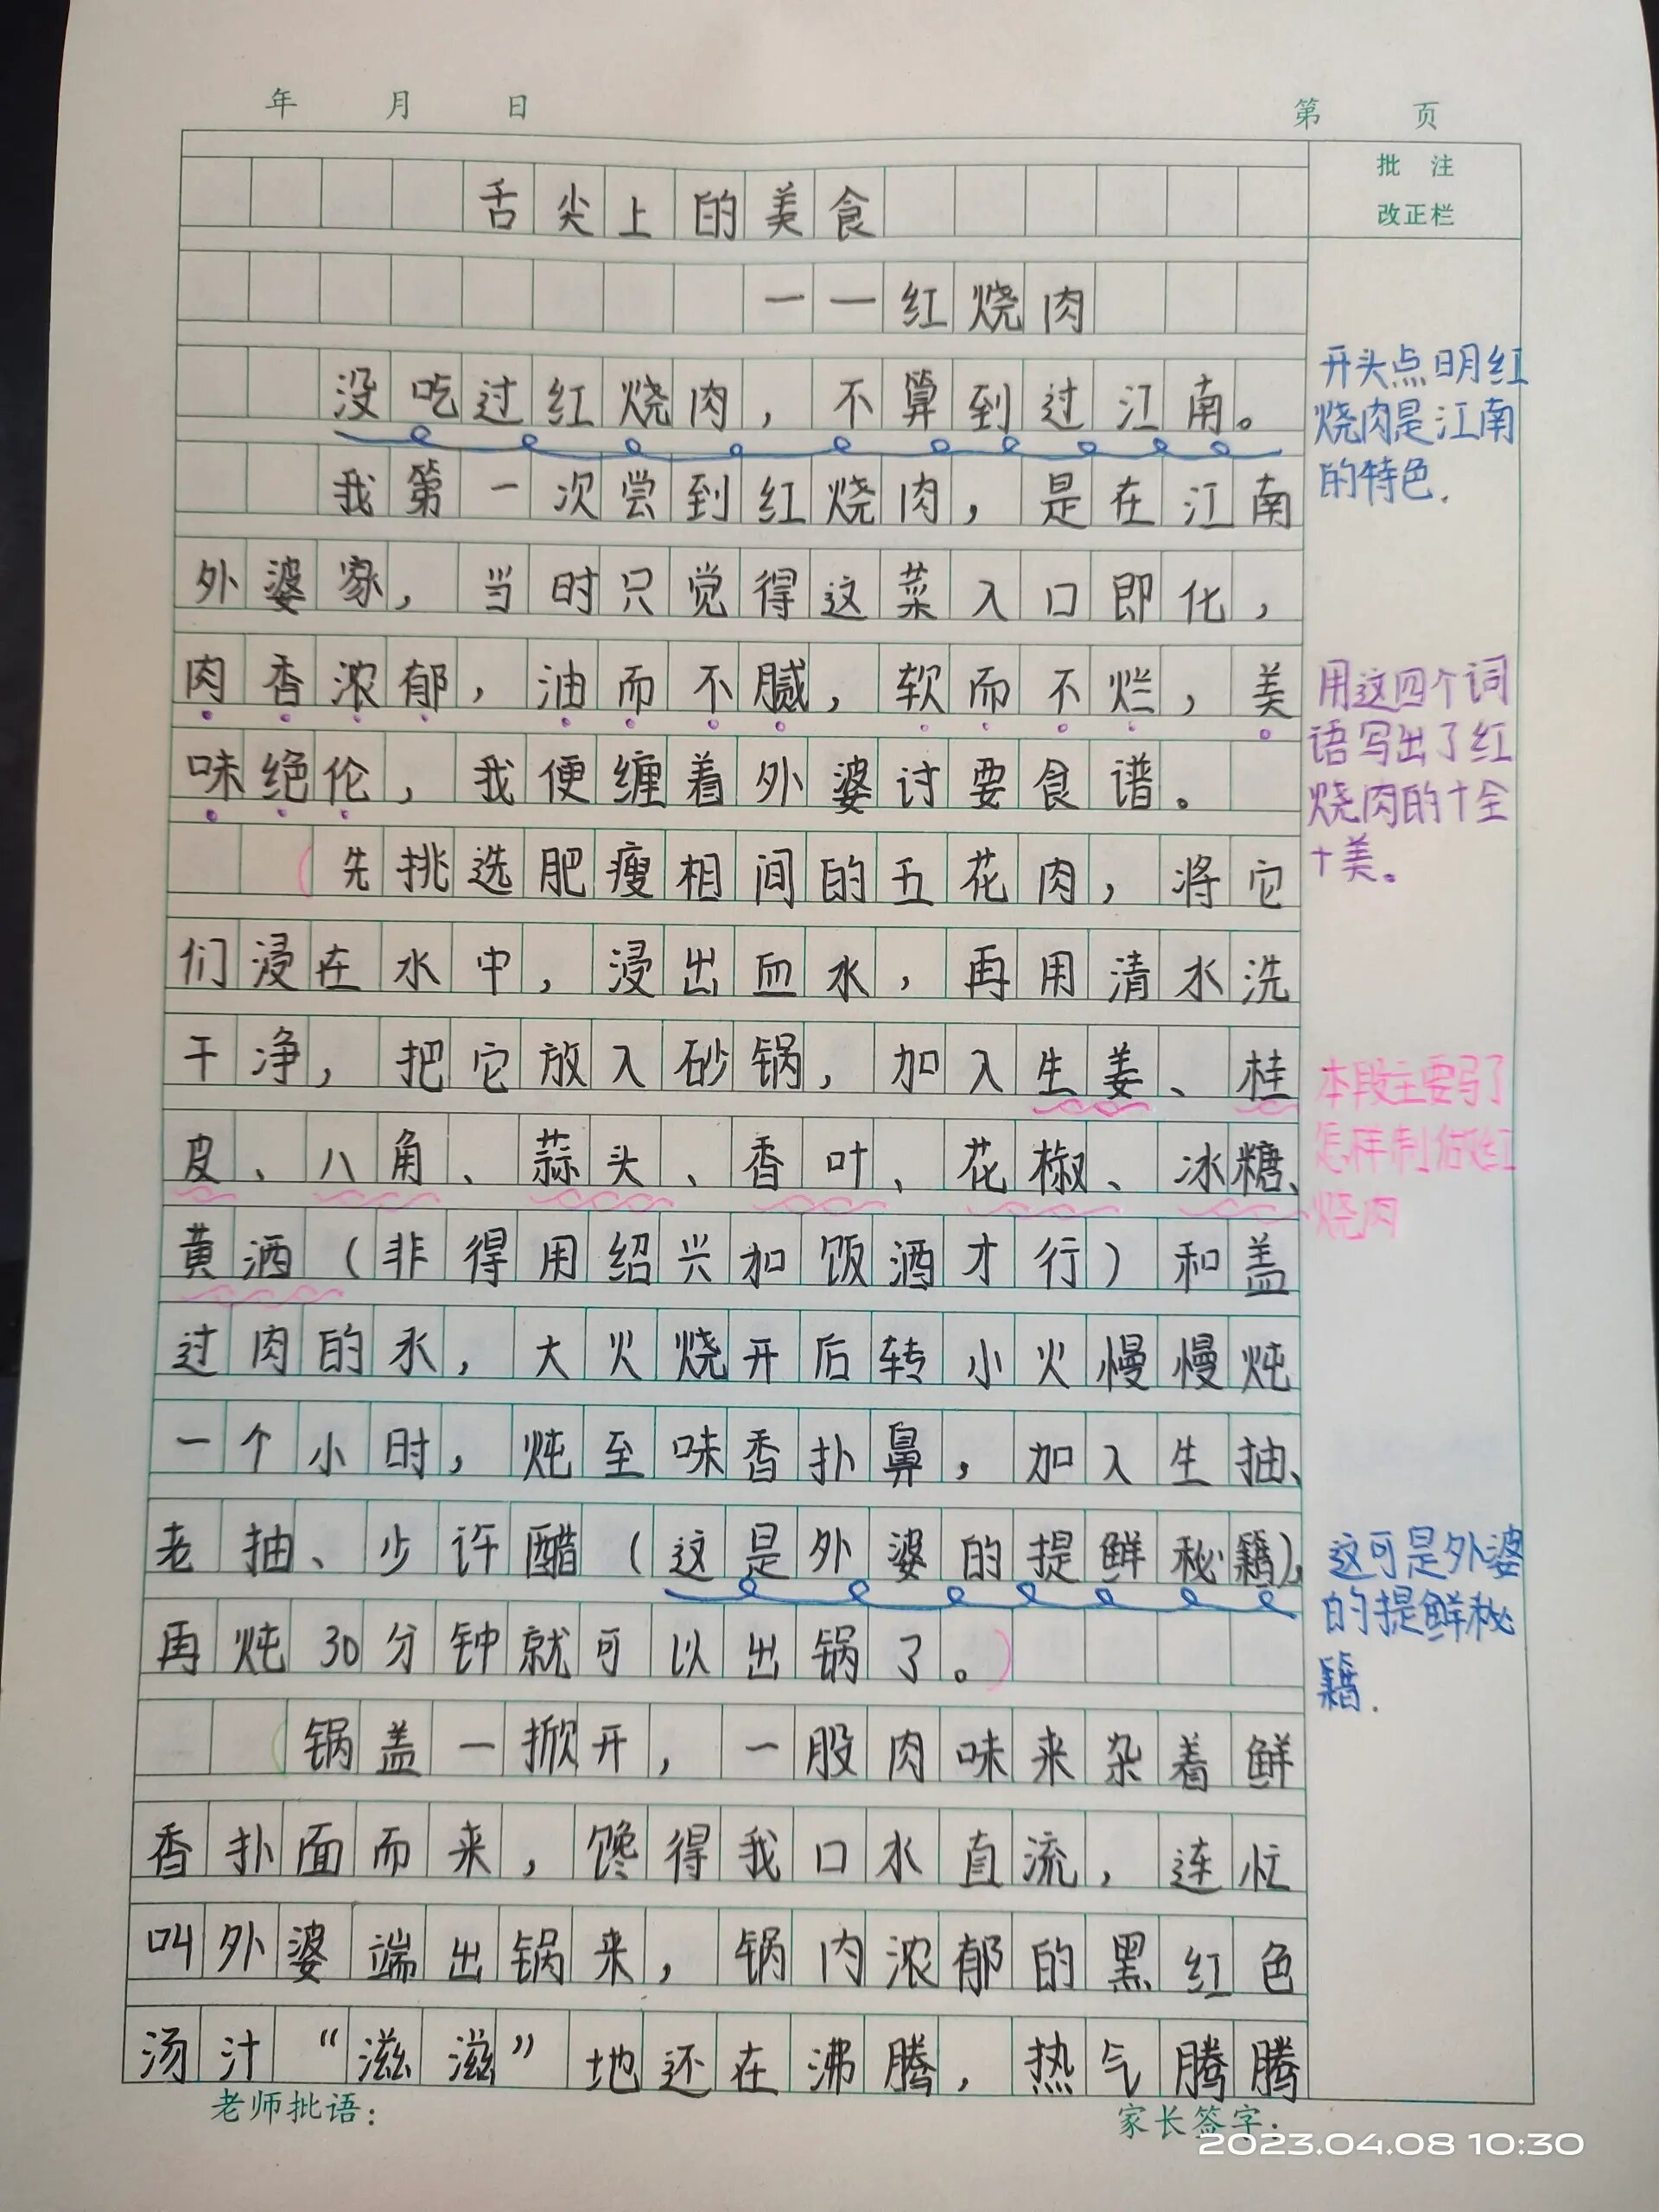 年 月 日
第 页
批 注
改正栏
舌尖上的美食
——红烧肉
没吃过红烧肉，不算到过江南。
我第一次尝到红烧肉，是在江南
外婆家，当时只觉得这菜入口即化，
肉香浓郁，油而不腻，软而不烂，美
味绝伦，我便缠着外婆讨要食谱。
（先挑选肥瘦相间的五花肉，将它
们浸在水中，浸出血水，再用清水洗
干净，把它放入砂锅，加入生姜、桂
皮、八角、蒜头、香叶、花椒、冰糖、
黄酒（非得用绍兴加饭酒才行）和盖
过肉的水，大火烧开后转小火慢慢炖
一个小时，炖至味香扑鼻，加入生抽、
老抽、少许醋（这是外婆的提鲜秘籍），
再炖30分钟就可以出锅了。）
（锅盖一掀开，一股肉味来杂着鲜
香扑面而来，馋得我口水直流，连忙
叫外婆端出锅来，锅内浓郁的黑红色
汤汁“滋滋”地还在沸腾，热气腾腾
开头点明红
烧肉是江南
的特色.
用这四个词
语写出了红
烧肉的十全
十美。
本段主要写了
怎样制做红
烧肉
这可是外婆
的提鲜秘
籍.
老师批语：
家长签字：
2023.04.08 10:30